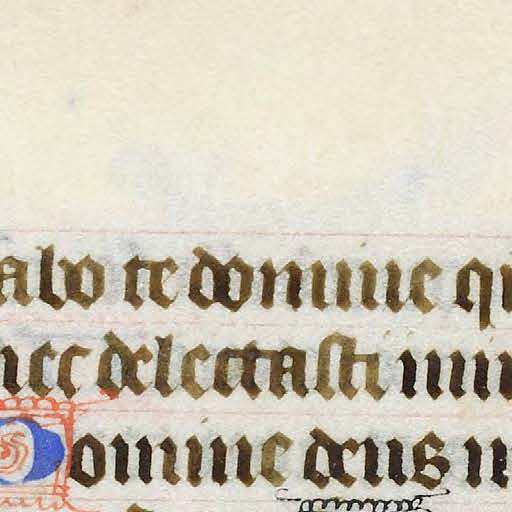 abo te domine qu
nec delectasti inim
Domine deus m